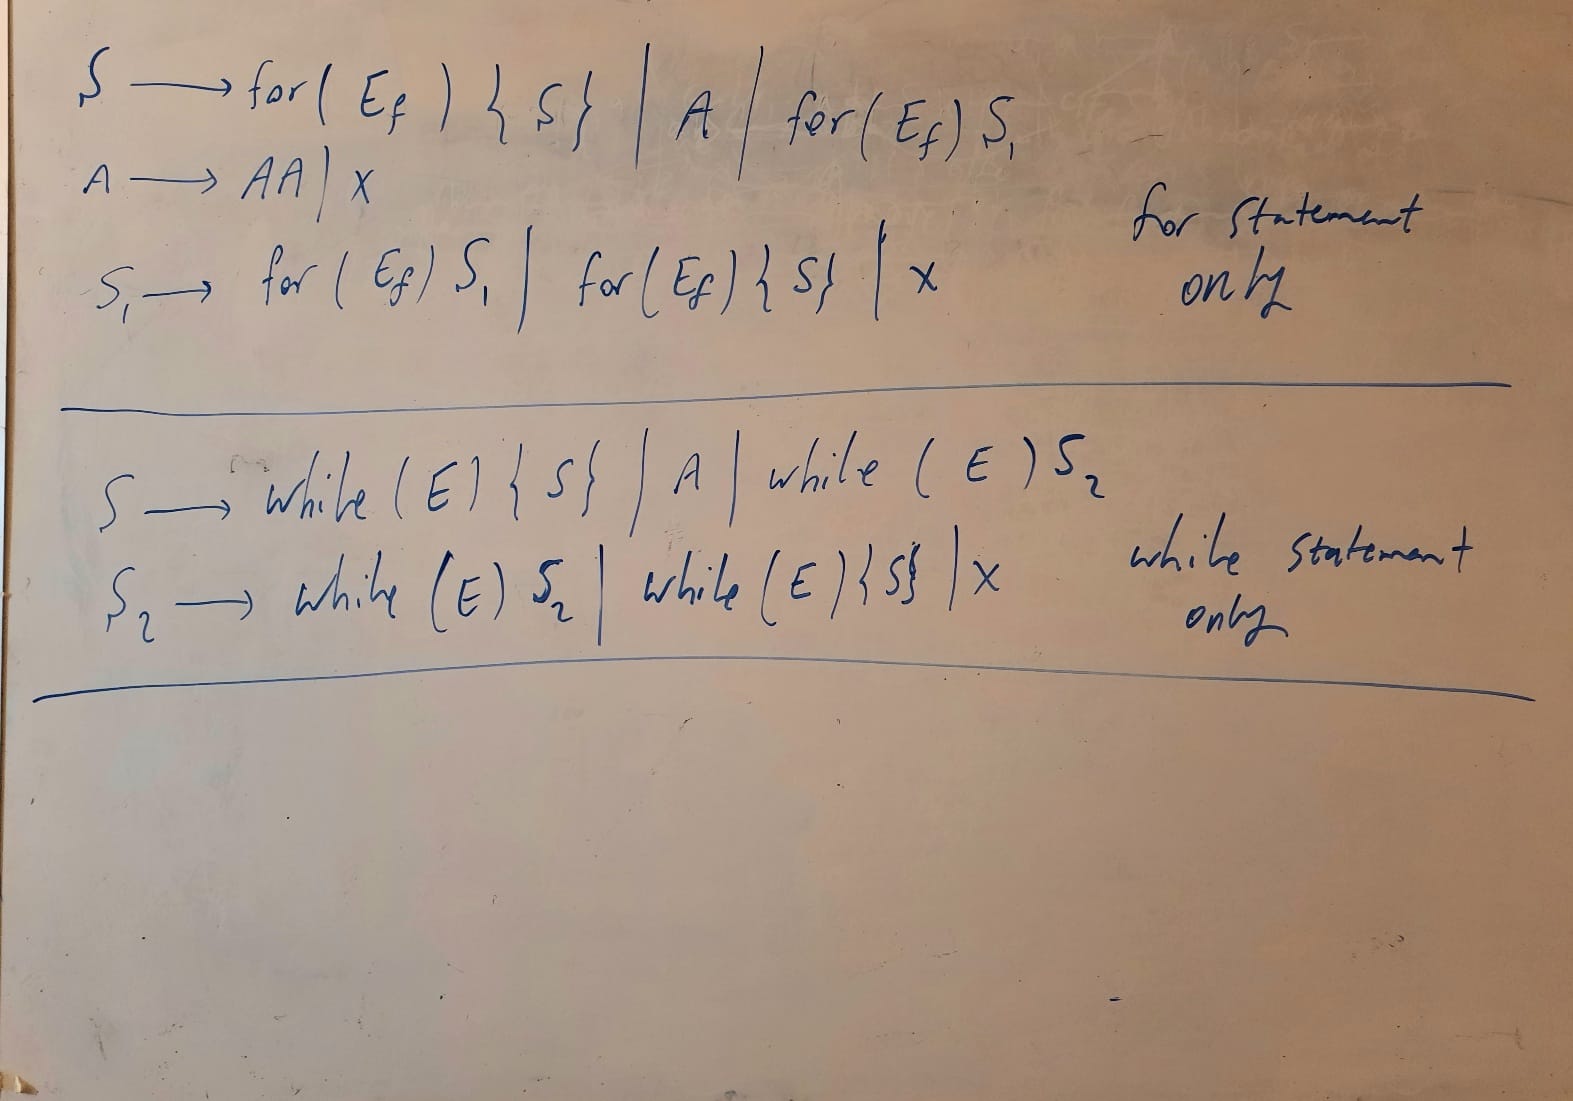 S → for( E_f ) { S} | A | for( E_f) S₁
A → AA | x
S₁ → for ( E_f) S₁ | for( E_f) { S} | x
for statement
only
S → while (E) { S} | A | while ( E ) S₂
S₂ → while (E) S₂ | while (E) {S} | x
while statement
only